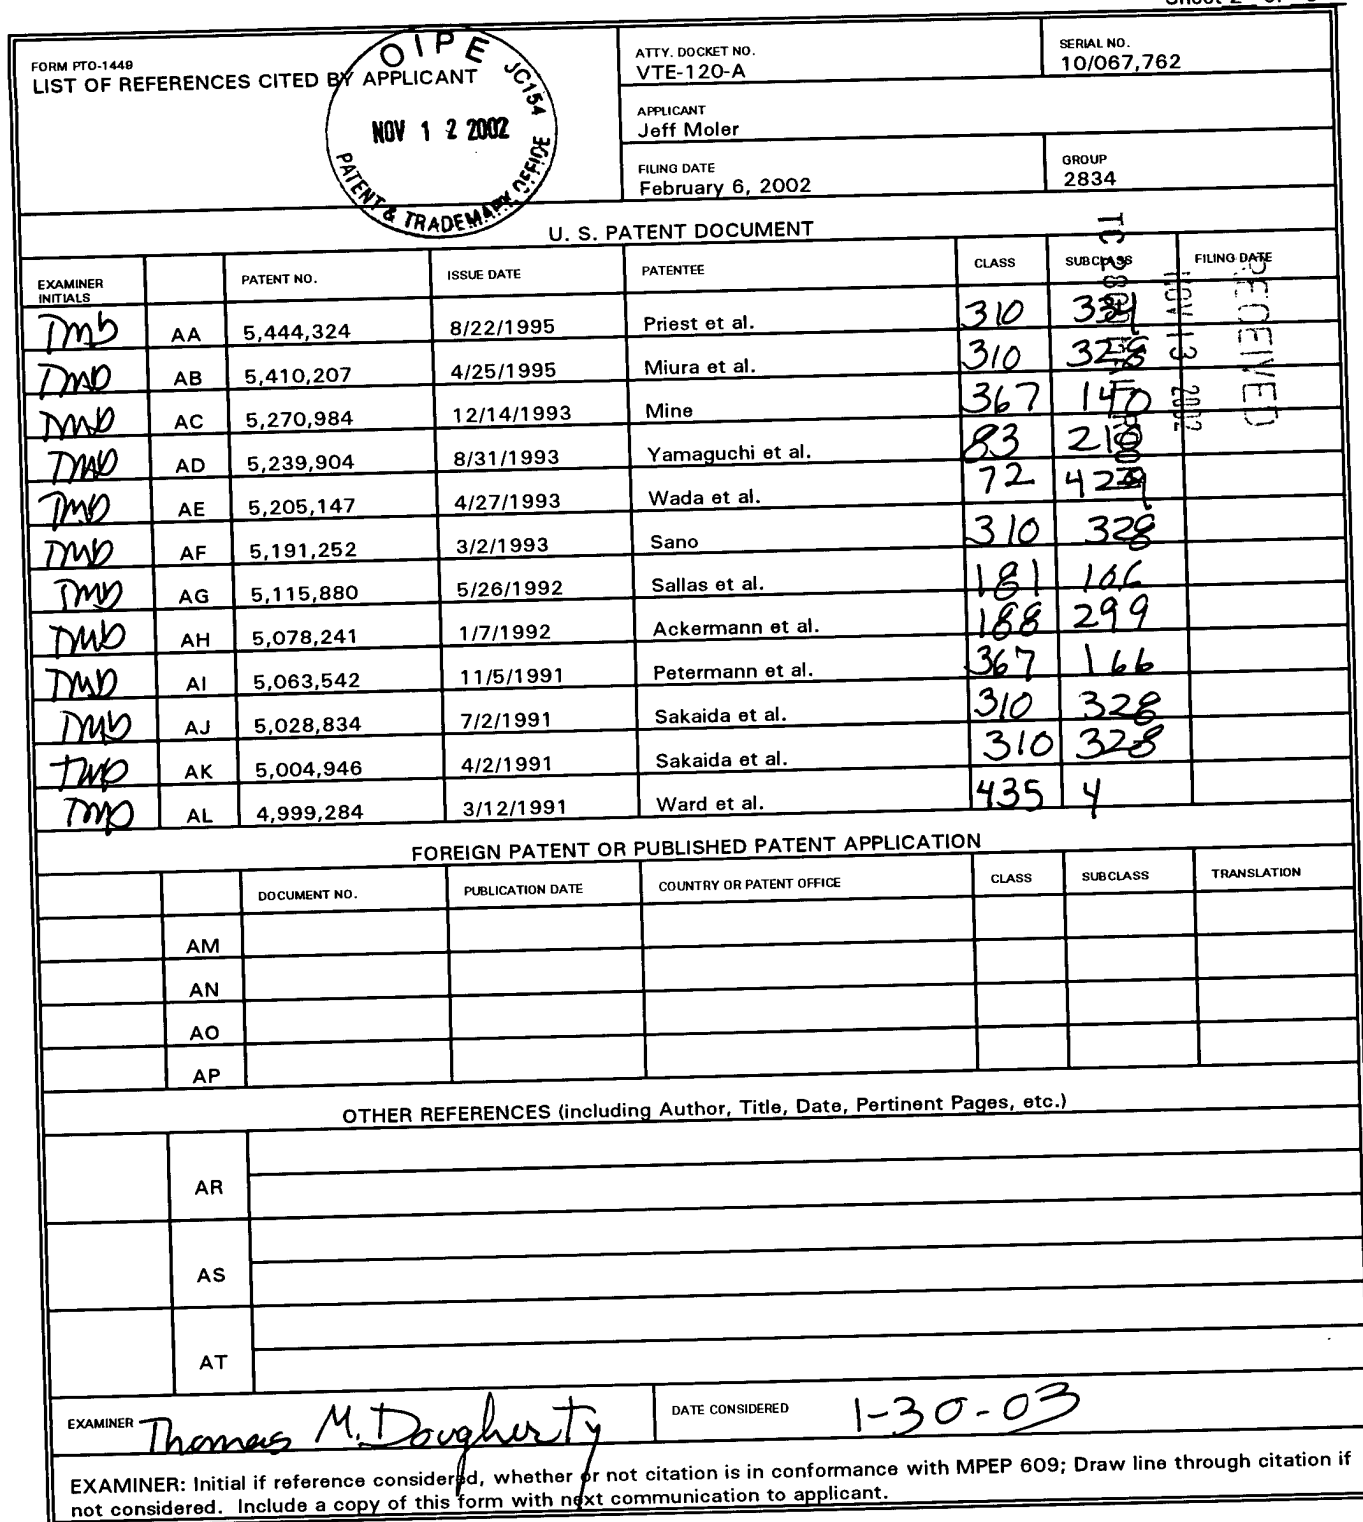 FORM PTO-1449
LIST OF REFERENCES CITED BY APPLICANT
OIPE JC154
NOV 12 2002
PATENT & TRADEMARK OFFICE
ATTY. DOCKET NO.
VTE-120-A
SERIAL NO.
10/067,762
APPLICANT
Jeff Moler
FILING DATE
February 6, 2002
GROUP
2834
RECEIVED
NOV 13 2002
U. S. PATENT DOCUMENT
EXAMINER INITIALS PATENT NO. ISSUE DATE PATENTEE CLASS SUBCLASS FILING DATE
TMD AA 5,444,324 8/22/1995 Priest et al. 310
TMD AB 5,410,207 4/25/1995 Miura et al. 310 328
TMD AC 5,270,984 12/14/1993 Mine 367 140
TMD AD 5,239,904 8/31/1993 Yamaguchi et al. 83
TMD AE 5,205,147 4/27/1993 Wada et al. 72
TMD AF 5,191,252 3/2/1993 Sano 310 328
TMD AG 5,115,880 5/26/1992 Sallas et al. 181 106
TMD AH 5,078,241 1/7/1992 Ackermann et al. 188 299
TMD AI 5,063,542 11/5/1991 Petermann et al. 367 166
TMD AJ 5,028,834 7/2/1991 Sakaida et al. 310 328
TMD AK 5,004,946 4/2/1991 Sakaida et al. 310 328
TMD AL 4,999,284 3/12/1991 Ward et al. 435 4
FOREIGN PATENT OR PUBLISHED PATENT APPLICATION
DOCUMENT NO. PUBLICATION DATE COUNTRY OR PATENT OFFICE CLASS SUBCLASS TRANSLATION
AM
AN
AO
AP
OTHER REFERENCES (including Author, Title, Date, Pertinent Pages, etc.)
AR
AS
AT
EXAMINER Thomas M. Dougherty DATE CONSIDERED 1-30-03
EXAMINER: Initial if reference considered, whether or not citation is in conformance with MPEP 609; Draw line through citation if
not considered. Include a copy of this form with next communication to applicant.